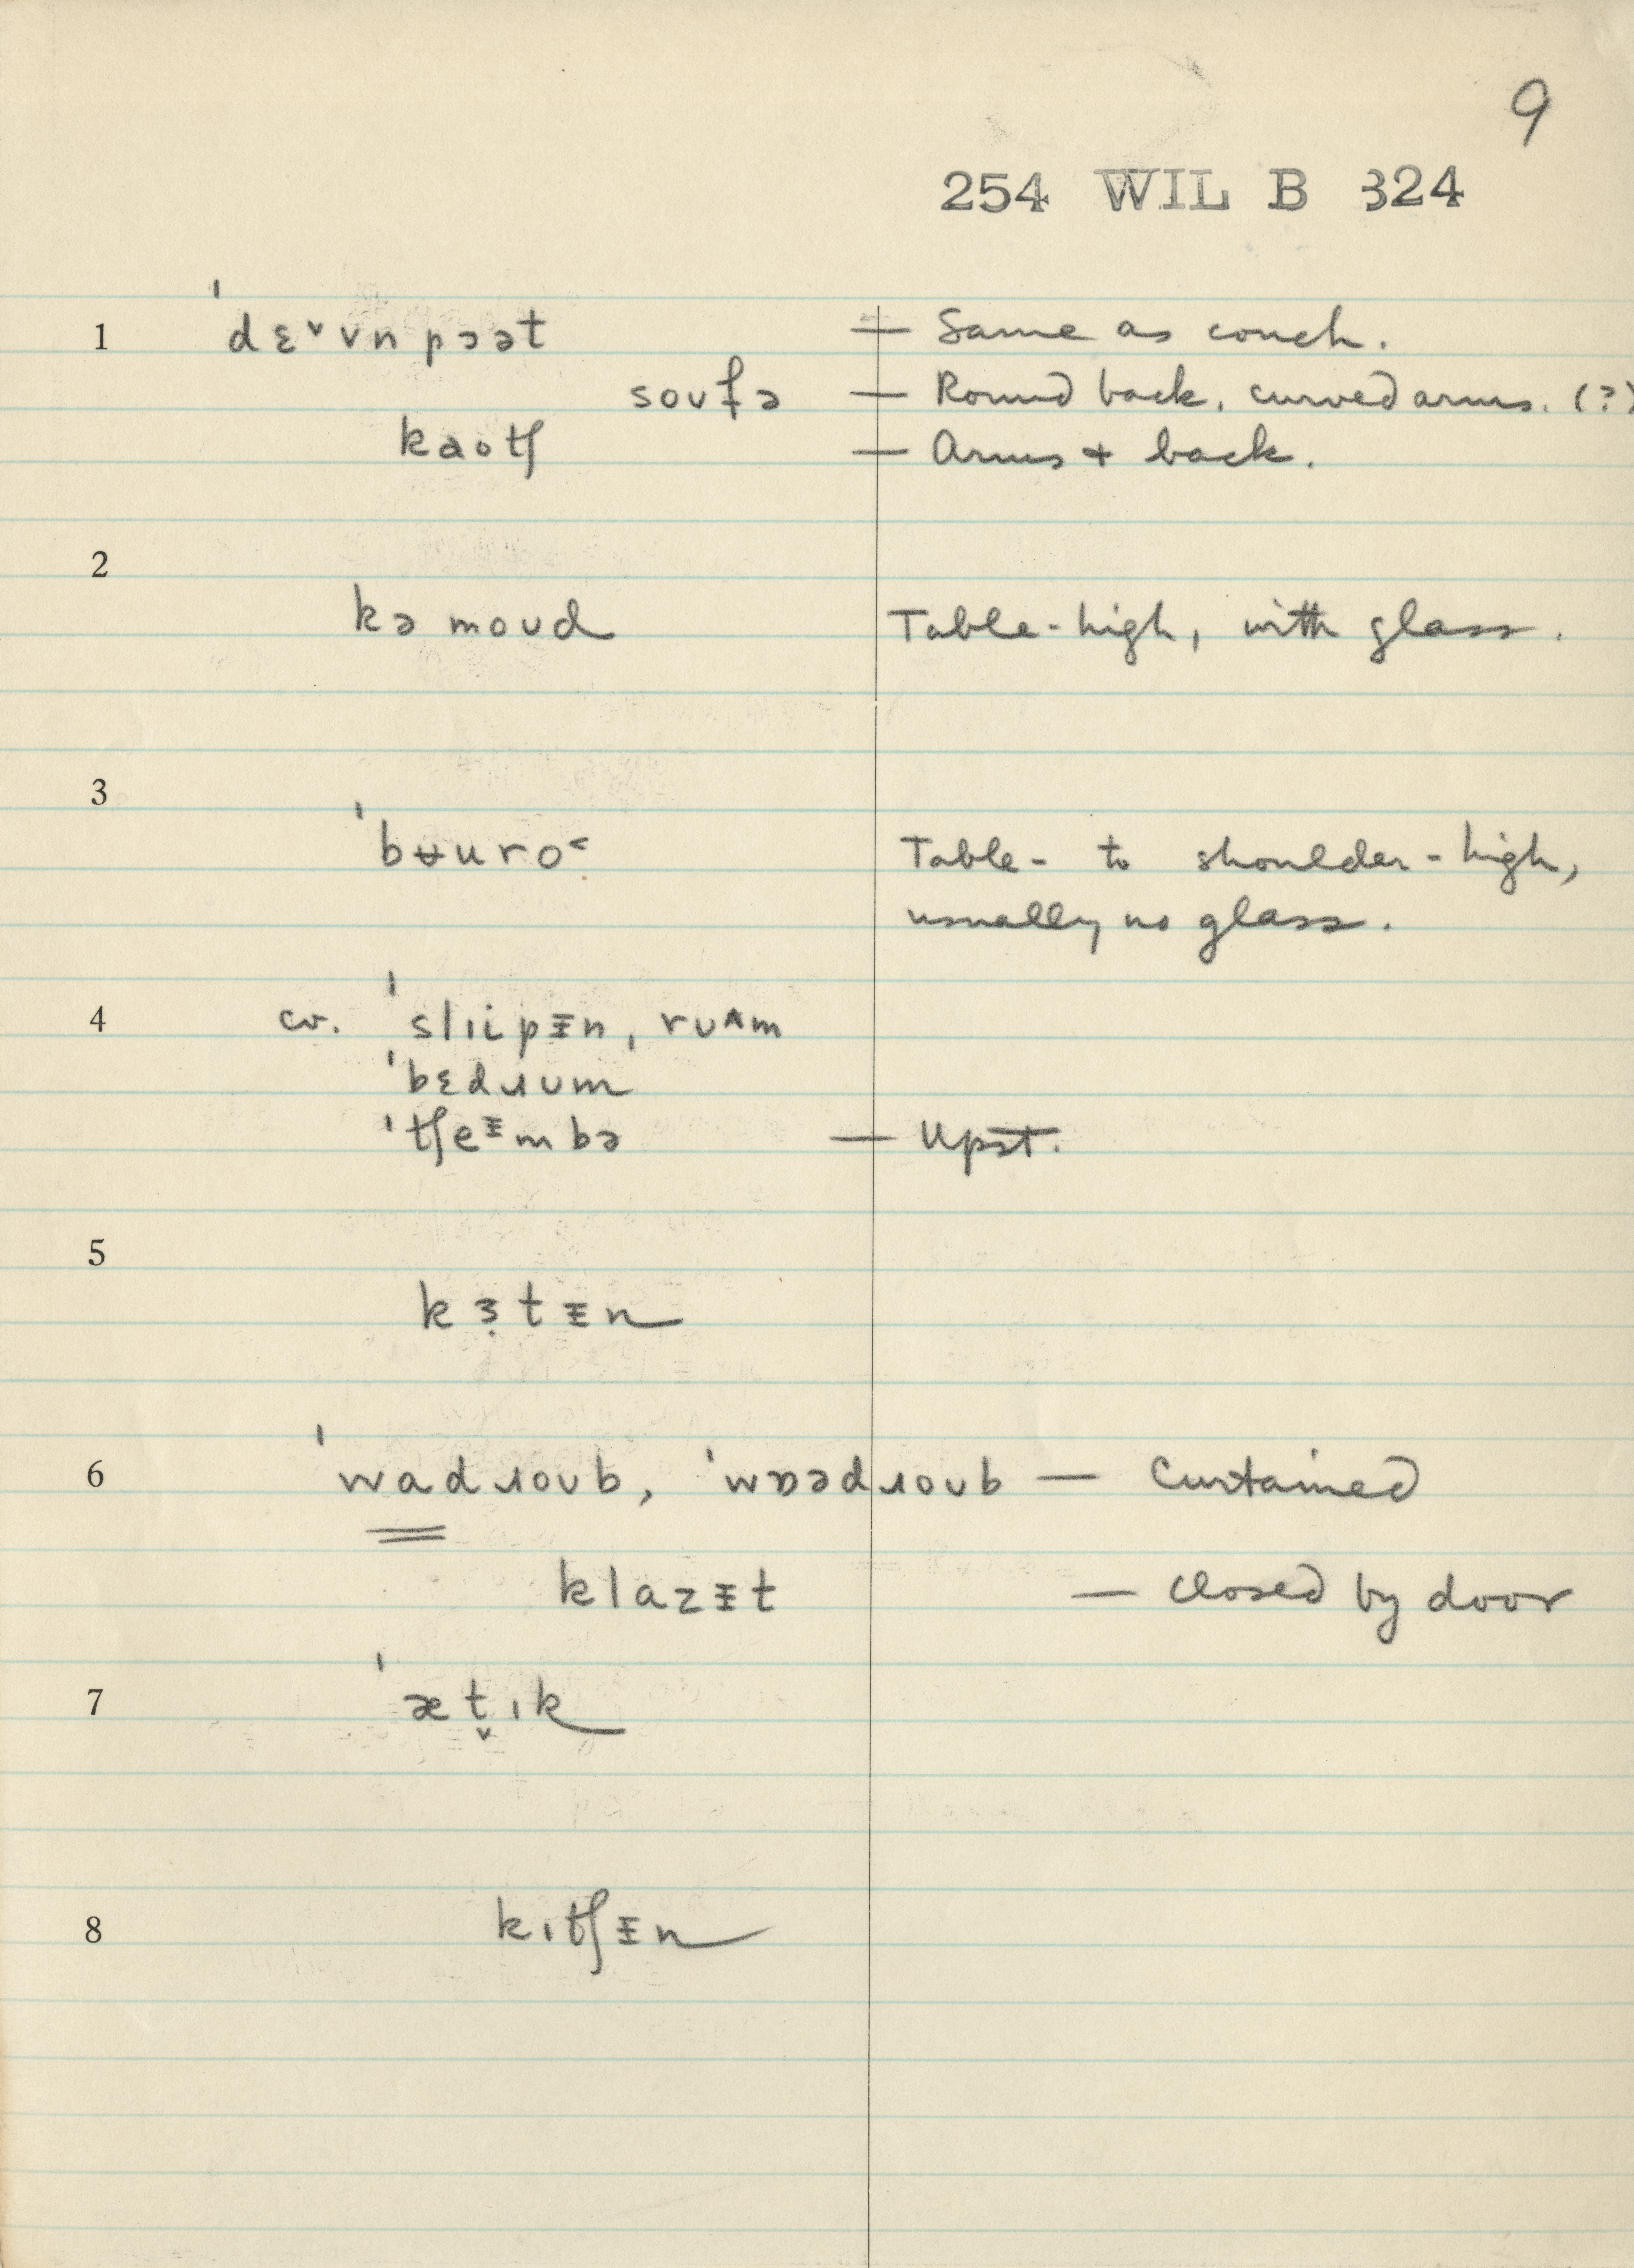 9
254 WIL B 324
1 ˈdɛˇvn pɔət — Same as couch.
soʊfə — Round back, curved arms. (?)
kaotʃ — Arms + back.
2
kə moʊd Table-high, with glass.
3
ˈbʉuro˂ Table- to shoulder-high,
usually no glass.
4 cv. ˈslɪipᵻn, rʊ^m
ˈbɛdɹʊm
ˈtʃeᵻmbə — Upst.
5
kɜ̣tᵻn
6 ˈwadɹoʊb, ˈwɒədɹoʊb — Curtained
klazᵻt — Closed by door
7 ˈæt̬ɪk
8 kɪtʃᵻn